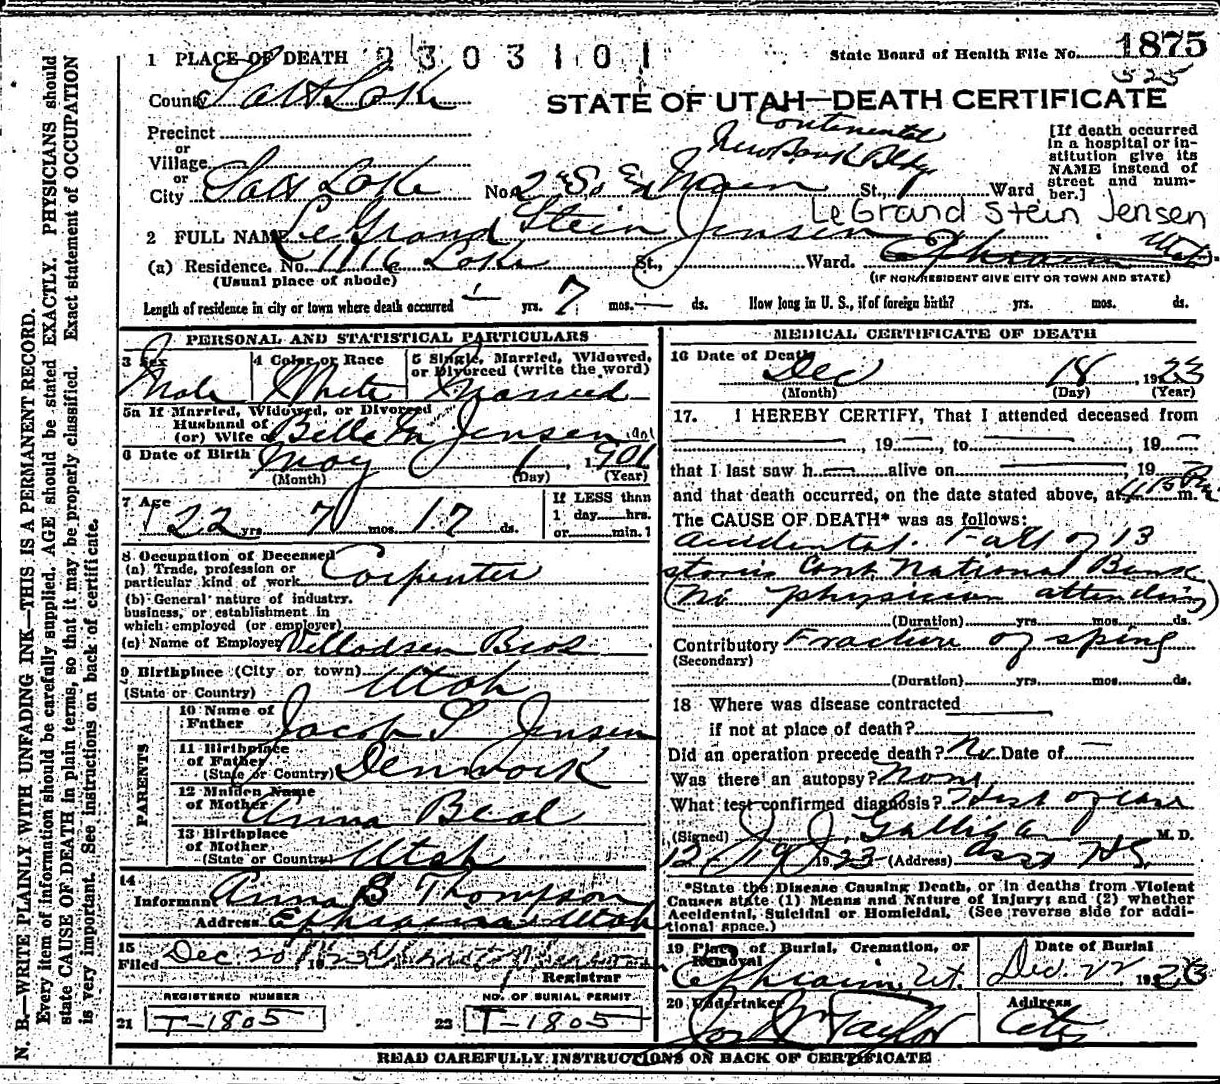 1 PLACE OF DEATH 2303101 State Board of Health File No. 1875
525
County Salt Lake STATE OF UTAH—DEATH CERTIFICATE
Precinct
or
Village
or
City Salt Lake No. 2 So Main St., Ward
Continental
New Bank Bldg.
[If death occurred
in a hospital or in-
stitution give its
NAME instead of
street and num-
ber.]
LeGrand Stein Jensen
2 FULL NAME LeGrand Stein Jensen
(a) Residence. No. 1116 Lake St., Ward. Ephraim Utah
(Usual place of abode) (IF NON-RESIDENT GIVE CITY OR TOWN AND STATE)
Length of residence in city or town where death occurred — yrs. 7 mos. — ds. How long in U. S., if of foreign birth? yrs. mos. ds.
PERSONAL AND STATISTICAL PARTICULARS
3 Sex 4 Color or Race 5 Single, Married, Widowed,
or Divorced (write the word)
Male White Married
5a If Married, Widowed, or Divorced
Husband of
(or) Wife of Belle M Jensen
6 Date of Birth May 1 1901
(Month) (Day) (Year)
7 Age 22 yrs 7 mos. 17 ds.
If LESS than
1 day hrs.
or min.?
8 Occupation of Deceased
(a) Trade, profession or
particular kind of work Carpenter
(b) General nature of industry,
business, or establishment in
which employed (or employer)
(c) Name of Employer Bros
9 Birthplace (City or town)
(State or Country) Utah
PARENTS
10 Name of
Father Jacob S Jensen
11 Birthplace
of Father
(State or Country) Denmark
12 Maiden Name
of Mother Anna Beal
13 Birthplace
of Mother
(State or Country) Utah
14
Informant Anna B Thompson
Address Ephraim Utah
15
Filed Dec 20 1923
Registrar
REGISTERED NUMBER NO. OF BURIAL PERMIT
21 T-1805 22 T-1805
MEDICAL CERTIFICATE OF DEATH
16 Date of Death Dec 18, 1923
(Month) (Day) (Year)
17. I HEREBY CERTIFY, That I attended deceased from
—, 19—, to —, 19—
that I last saw h— alive on —, 19—
and that death occurred, on the date stated above, at 4.15 P m.
The CAUSE OF DEATH* was as follows:
accidental. Fall of 13
stories Cont National Bank
(no physician attending)
(Duration) yrs. mos. ds.
Contributory Fracture of spine
(Secondary)
(Duration) yrs. mos. ds.
18 Where was disease contracted
if not at place of death?
Did an operation precede death? No Date of —
Was there an autopsy? None
What test confirmed diagnosis? Hist of case
(Signed) J J Galligan M. D.
12/19/1923 (Address) Asst
*State the Disease Causing Death, or in deaths from Violent
Causes state (1) Means and Nature of Injury; and (2) whether
Accidental, Suicidal or Homicidal. (See reverse side for addi-
tional space.)
19 Place of Burial, Cremation, or
Removal Date of Burial
Ephraim, Ut. Dec. 22 1923
20 Undertaker Address
Jos Wm Taylor City
READ CAREFULLY INSTRUCTIONS ON BACK OF CERTIFICATE
N. B.—WRITE PLAINLY WITH UNFADING INK—THIS IS A PERMANENT RECORD.
Every item of information should be carefully supplied. AGE should be stated EXACTLY. PHYSICIANS should
state CAUSE OF DEATH in plain terms, so that it may be properly classified. Exact statement of OCCUPATION
is very important. See instructions on back of certificate.